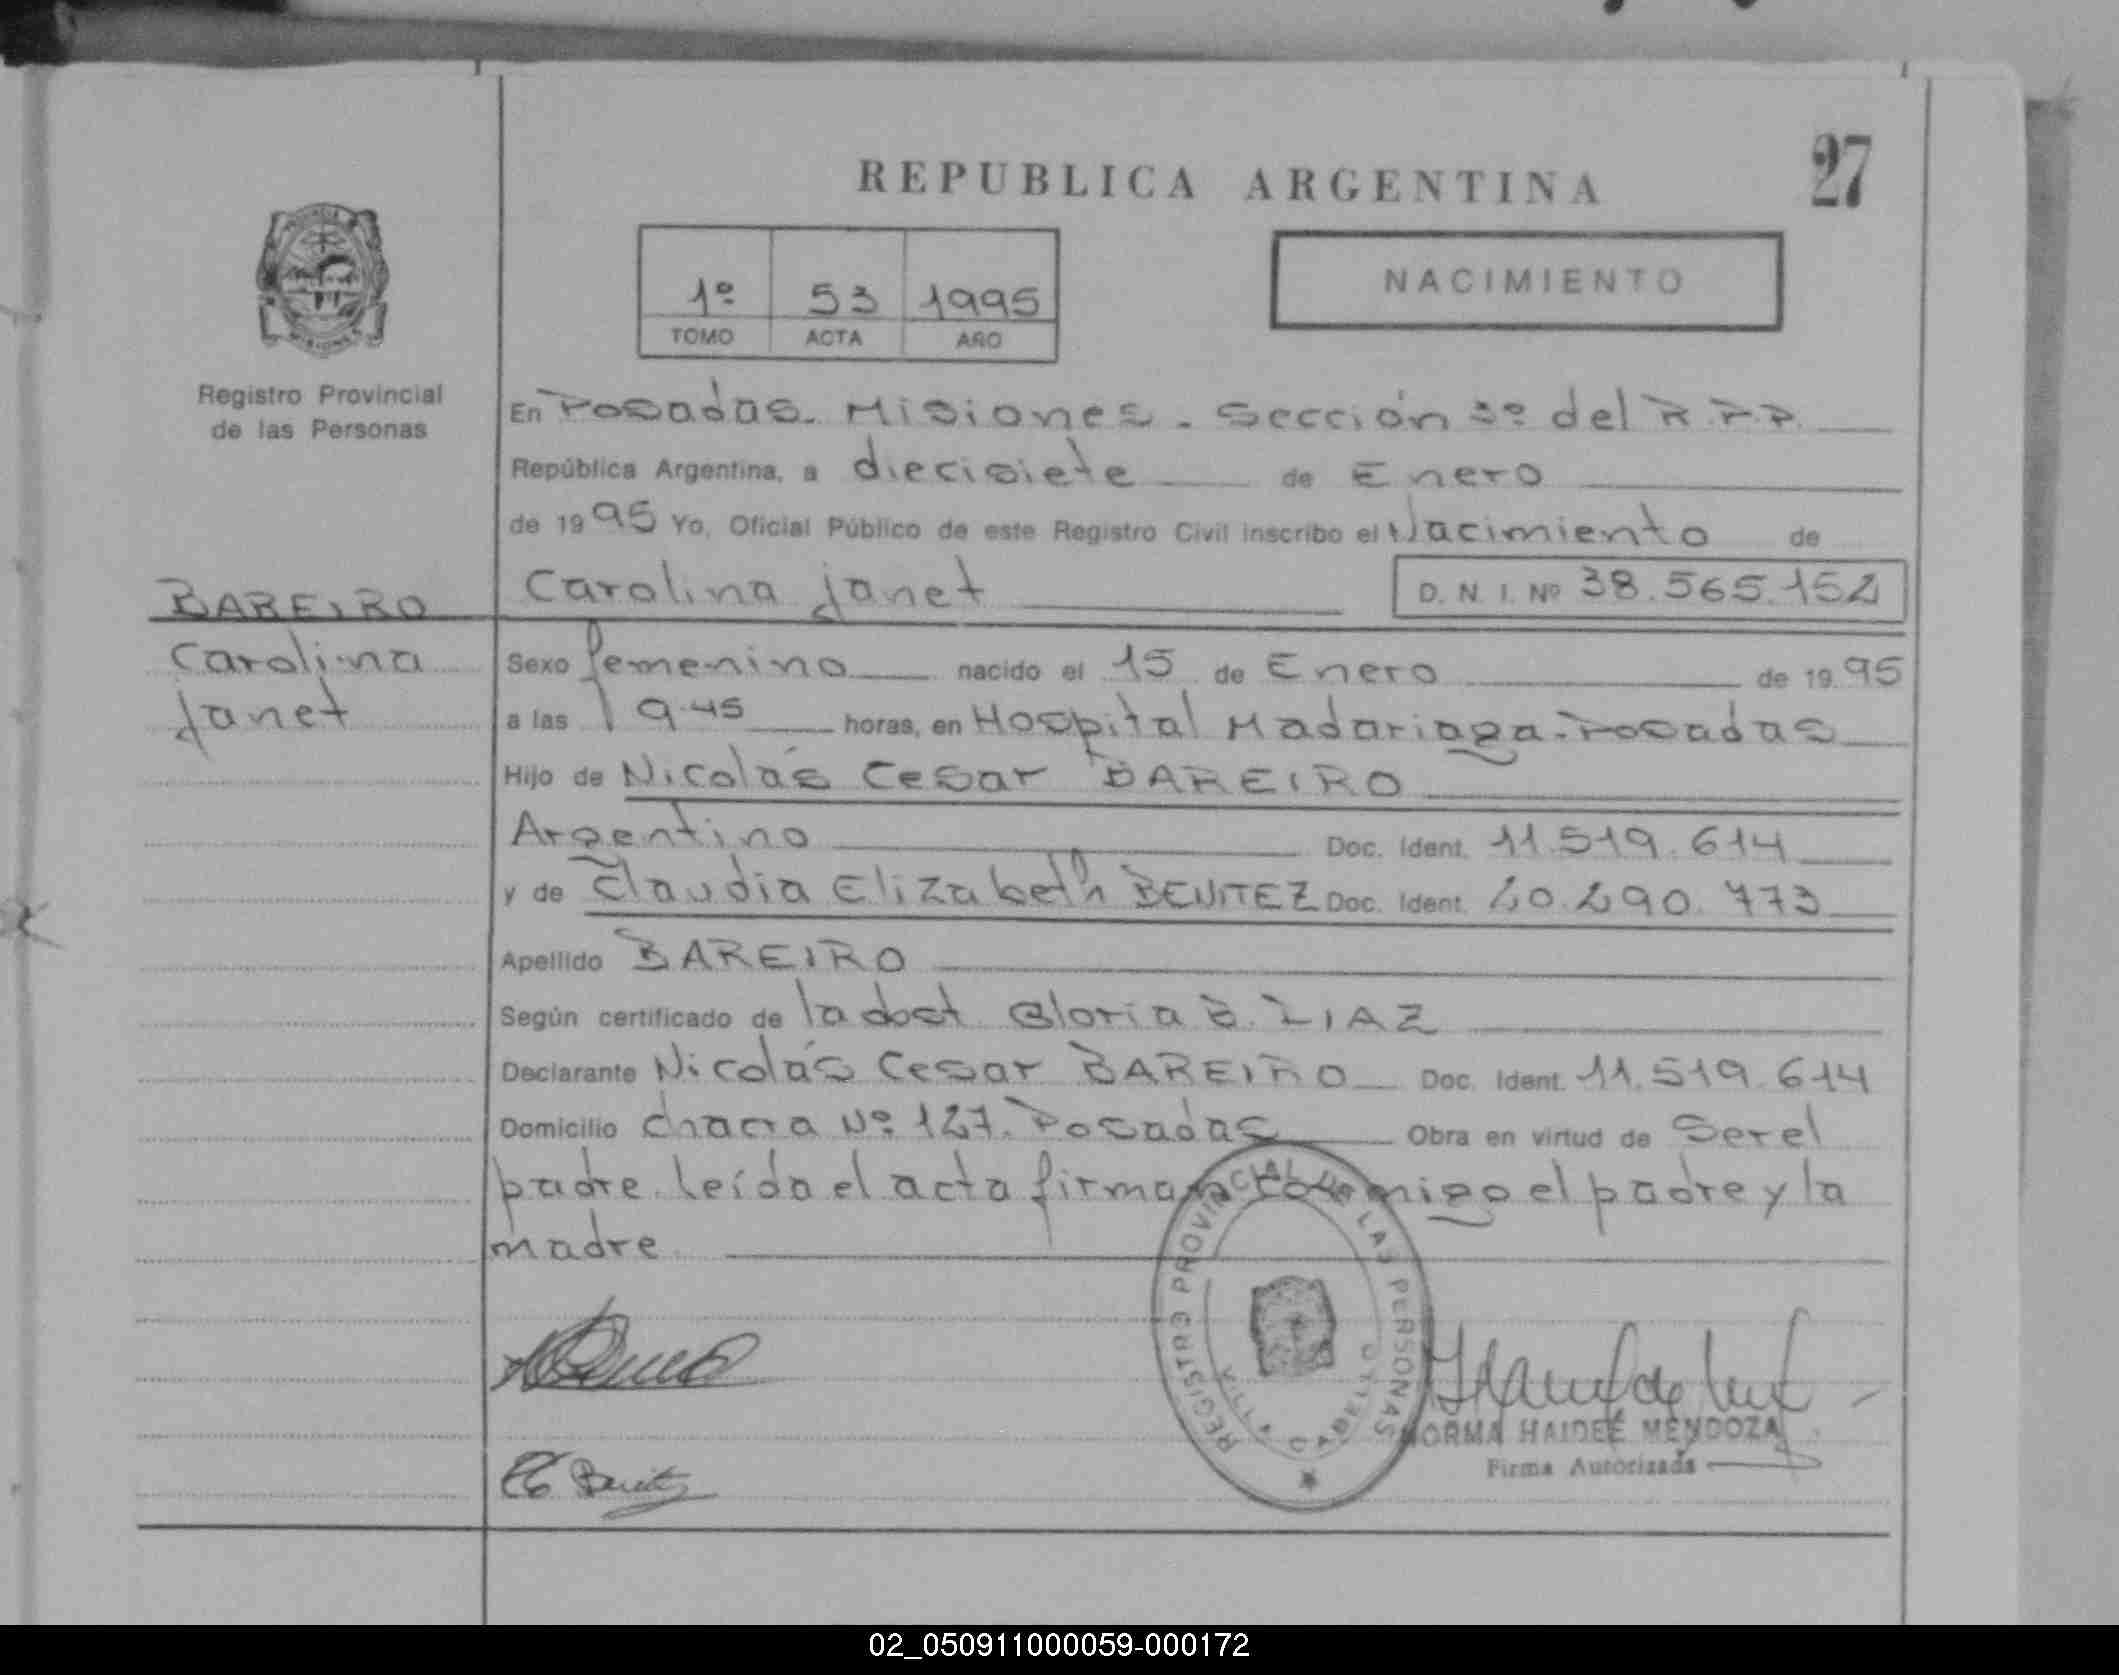 REPUBLICA ARGENTINA
27
NACIMIENTO
1º 53 1995
TOMO ACTA AÑO
MISIONES
Registro Provincial
de las Personas
En Posadas. Misiones. Sección 3º del R.P.P.
República Argentina, a diecisiete de Enero
de 1995 Yo, Oficial Público de este Registro Civil inscribo el Nacimiento de
BAREIRO
Carolina Janet D. N. I. Nº 38.565.152
Carolina
Janet
Sexo femenino nacido el 15 de Enero de 1995
a las 19.45 horas, en Hospital Madariaga. Posadas
Hijo de Nicolás Cesar BAREIRO
Argentino Doc. Ident. 11.519.614
y de Claudia Elizabeth BENITEZ Doc. Ident. 20.290.773
Apellido BAREIRO
Según certificado de la doct Gloria
Declarante Nicolás Cesar BAREIRO Doc. Ident. 11.519.614
Domicilio chacra Nº 127. Posadas Obra en virtud de Ser el
padre. leída el acta firman conmigo el padre y la
madre
REGISTRO PROVINCIAL DE LAS PERSONAS
VILLA CABELLO
Benitez
NORMA HAIDEÉ MENDOZA
Firma Autorizada
02_050911000059-000172